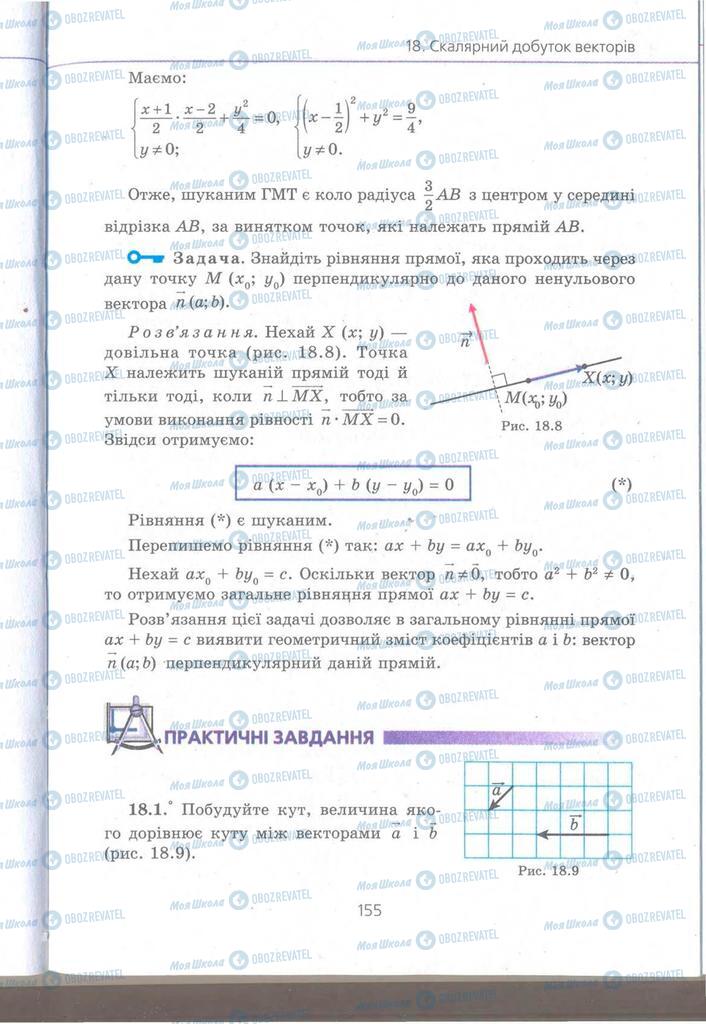 18. Скалярний добуток векторів
Маємо:
{(x+1)/2 · (x−2)/2 + y²/4 = 0, {(x − 1/2)² + y² = 9/4,
y ≠ 0; y ≠ 0.
Отже, шуканим ГМТ є коло радіуса 3/2 AB з центром у середині
відрізка AB, за винятком точок, які належать прямій AB.
Задача. Знайдіть рівняння прямої, яка проходить через
дану точку M (x₀; y₀) перпендикулярно до даного ненульового
вектора n⃗ (a; b).
Розв'язання. Нехай X (x; y) —
довільна точка (рис. 18.8). Точка
X належить шуканій прямій тоді й
тільки тоді, коли n⃗ ⊥ MX⃗, тобто за
умови виконання рівності n⃗ · MX⃗ = 0.
Звідси отримуємо:
n⃗
X(x; y)
M(x₀; y₀)
Рис. 18.8
a (x − x₀) + b (y − y₀) = 0 (*)
Рівняння (*) є шуканим.
Перепишемо рівняння (*) так: ax + by = ax₀ + by₀.
Нехай ax₀ + by₀ = c. Оскільки вектор n⃗ ≠ 0⃗, тобто a² + b² ≠ 0,
то отримуємо загальне рівняння прямої ax + by = c.
Розв'язання цієї задачі дозволяє в загальному рівнянні прямої
ax + by = c виявити геометричний зміст коефіцієнтів a і b: вектор
n⃗ (a; b) перпендикулярний даній прямій.
ПРАКТИЧНІ ЗАВДАННЯ
18.1.° Побудуйте кут, величина яко-
го дорівнює куту між векторами a⃗ і b⃗
(рис. 18.9).
a⃗
b⃗
Рис. 18.9
155
Моя Школа OBOZREVATEL